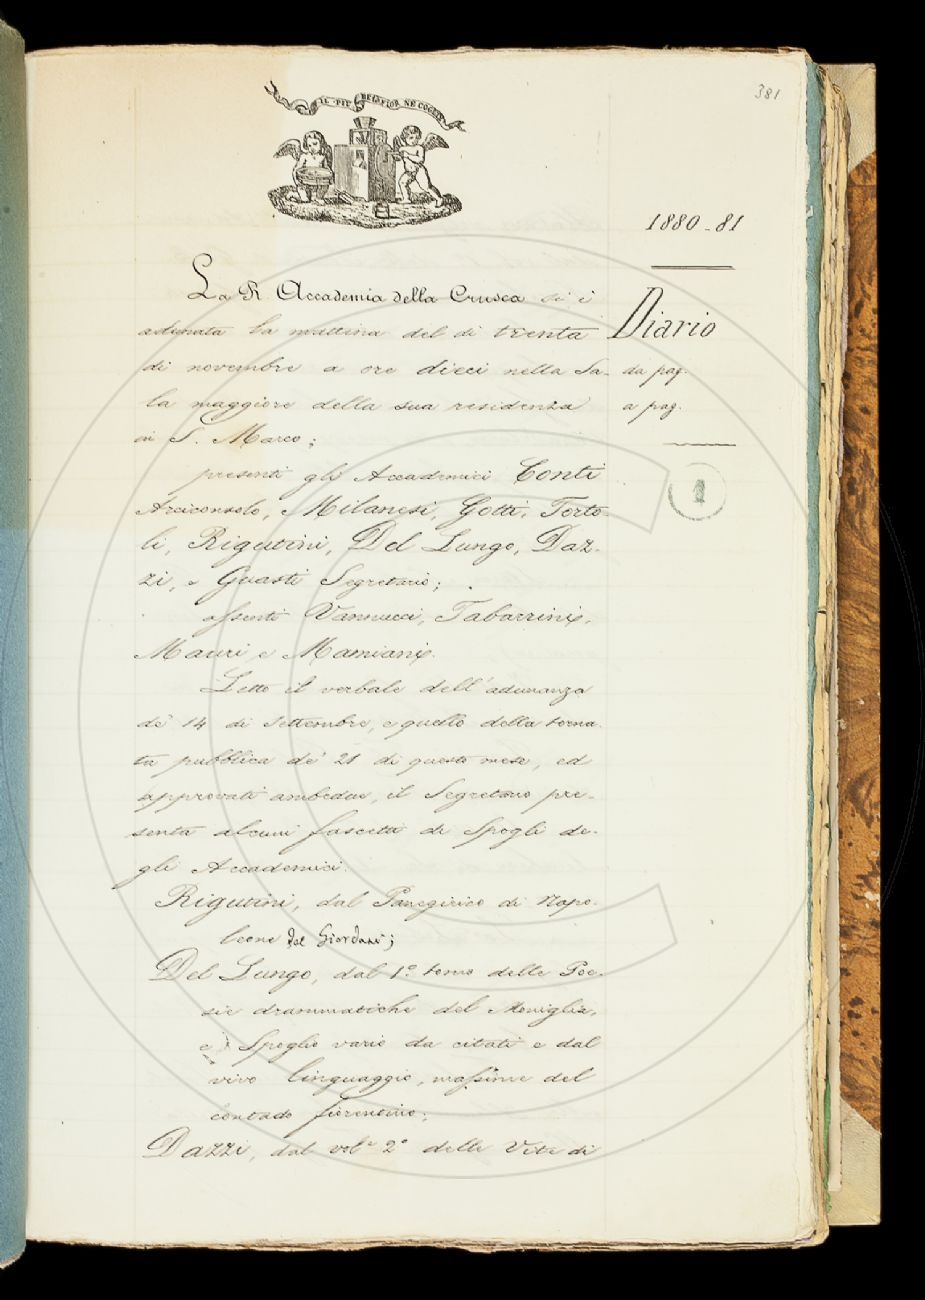 381
IL PIÙ BEL FIOR NE COGLIE
1880-81
La R. Accademia della Crusca si è
adunata la mattina del dì trenta
di novembre a ore dieci nella Sa-
la maggiore della sua residenza
in S. Marco;
presenti gli Accademici Conti
Arciconsolo, Milanesi, Gotti, Torto-
li, Rigutini, Del Lungo, Daz-
zi, e Guasti Segretario;
assenti Vannucci, Tabarrini,
Mauri, e Mamiani.
Letto il verbale dell'adunanza
de' 14 di Settembre, e quello della torna-
ta pubblica de' 21 di questo mese, ed
approvati ambedue, il Segretario pre-
senta alcuni fascetti di Spogli de-
gli Accademici.
Rigutini, dal Panegirico di Napo-
leone del Giordani;
Del Lungo, dal 1º. tomo delle Poe-
sie drammatiche del Moniglia,
e Spoglio vario da citati e dal
vivo linguaggio, massime del
contado fiorentino;
Dazzi, dal vol. 2º delle Vite di
Diario
da pag.
a pag.